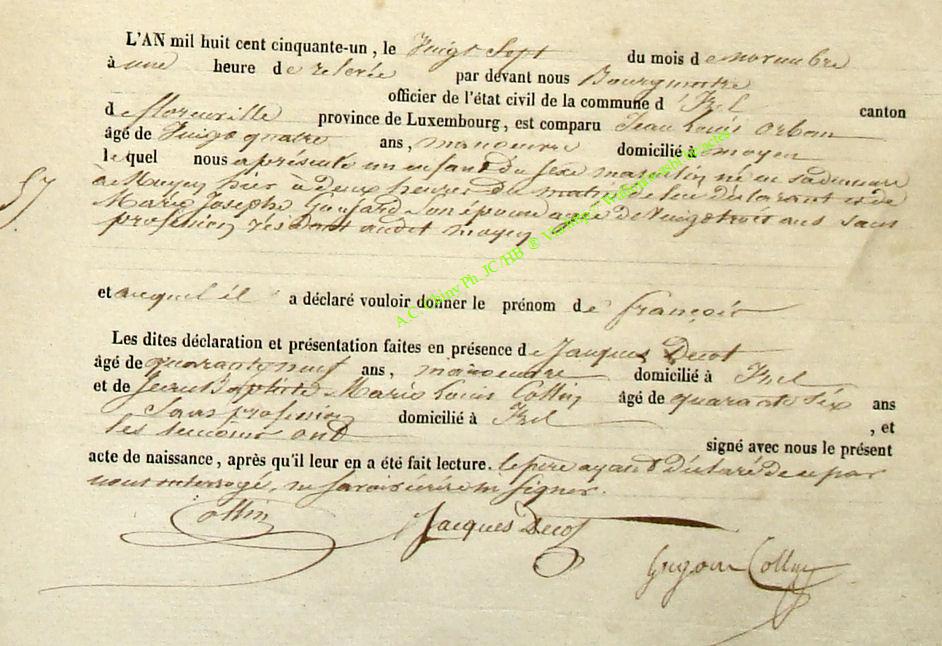 L'AN mil huit cent cinquante-un, le Vingt Sept du mois de novembre
à une heure de relevée par devant nous Bourgmestre
officier de l'état civil de la commune d'Izel canton
de Florenville province de Luxembourg, est comparu Jean Louis Orban
âgé de Vingt quatre ans, manoeuvre domicilié à moyen
lequel nous a présenté un enfant du Sexe masculin né en sa demeure
à Moyen hier à deux heures du matin de lui déclarant et de
Marie Josephe Son épouse agée de Vingt trois ans sans
profession résidant audit moyen
57
et auquel il a déclaré vouloir donner le prénom de françois
Les dites déclaration et présentation faites en présence de Jacques Decot
âgé de quarante neuf ans, manoeuvre domicilié à Izel
et de Jean Baptiste Marie Louis Collin âgé de quarante Six ans
Sans profession domicilié à Izel , et
les témoins ont signé avec nous le présent
acte de naissance, après qu'il leur en a été fait lecture. le père ayant déclaré de ce par
nous interrogé, ne savoir écrire ni signer.
Collin Jacques Decot
Collin
A.C. Chiny Ph. JC/HB ®